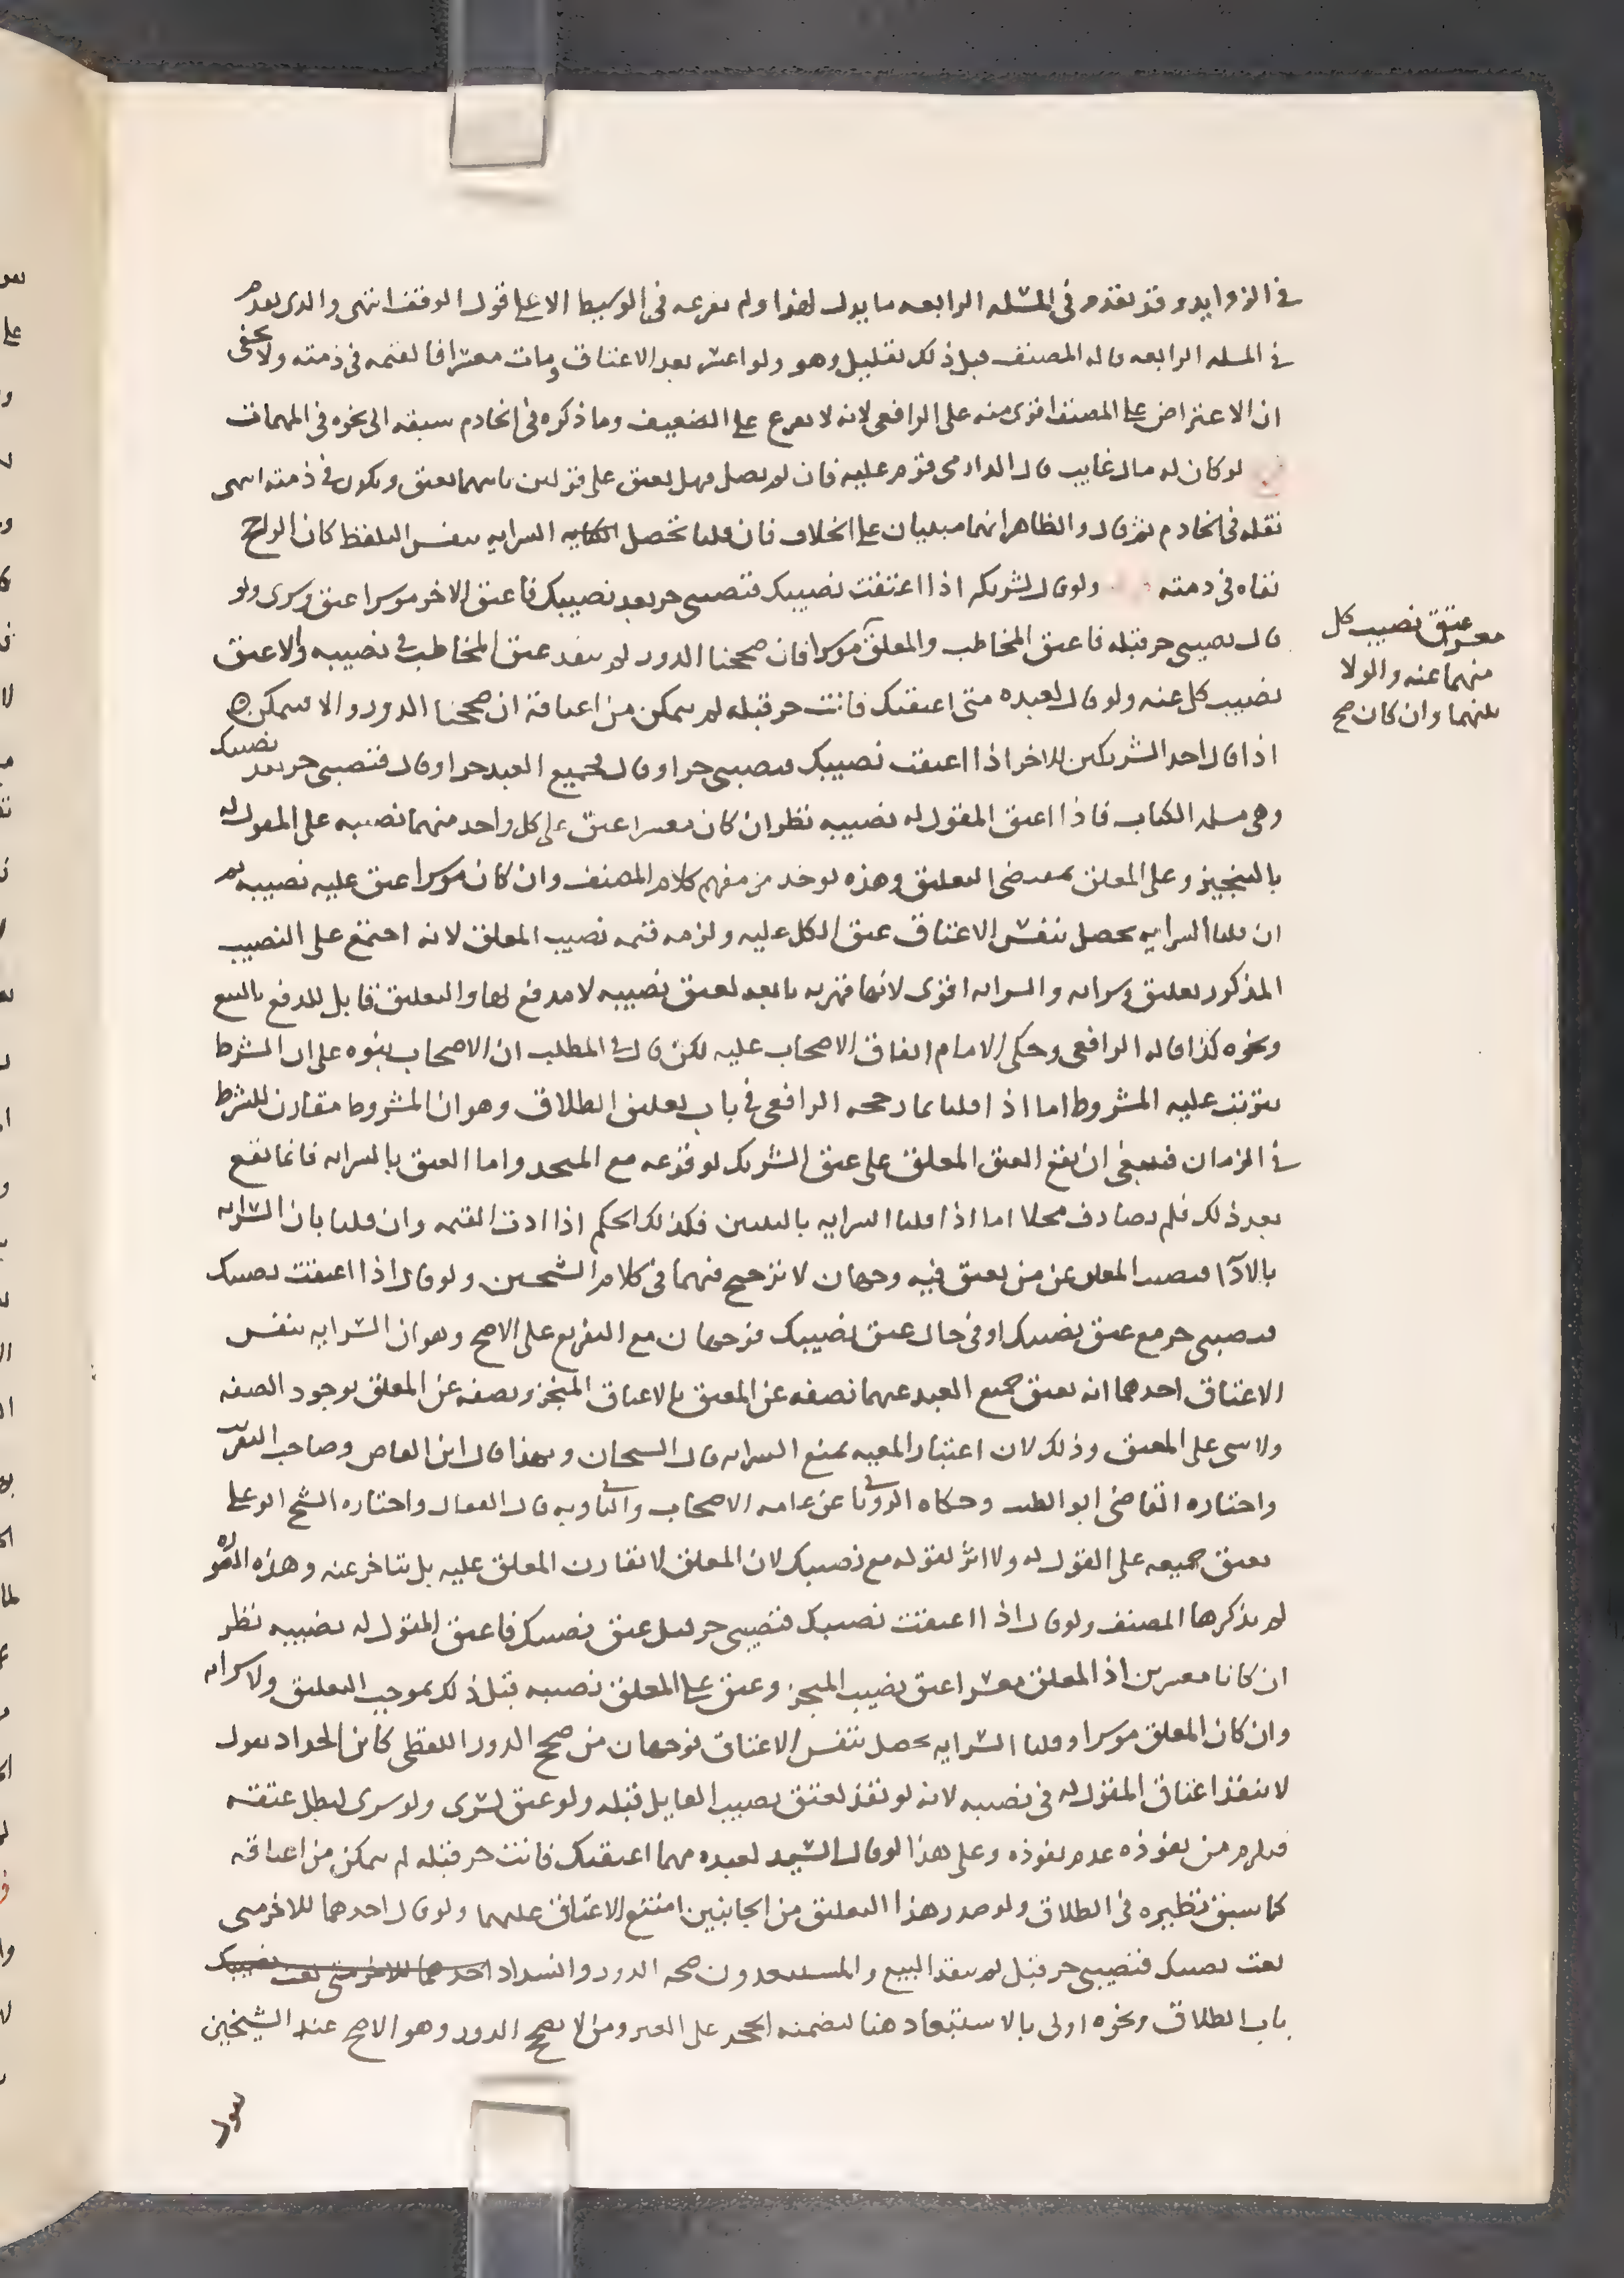 في الزوايد وقد تقدم في المسله الرابعه ما يدل لهذا ولم يفرعه في الوسيط الا على قول الوقف انتهى والذي تقدم
في المسله الرابعه قاله المصنف قبل ذلك بقليل وهو ولو اعسر بعد الاعتاق ومات معسرا فالقيمه في ذمته ولا يخفى
ان الاعتراض على المصنف اقوى منه على الرافعي لانه لا يفرع على الضعيف وما ذكره في الخادم سبقه الى نحوه في المهمات
لو كان له مال غايب قال الدارمي قوم عليه فان لم يصل فهل يعتق على قولين ثانيهما يعتق ويكون في ذمته انتهى
نقله في الخادم ثم قال والظاهر انهما مبنيان على الخلاف فان قلنا تحصل السرايه بنفس التلفظ كان الراجح
بقاه في ذمته ولو قال لشريكه اذا اعتقت نصيبك فنصيبي حر بعد نصيبك فاعتق الاخر موسرا عتق وسرى ولو
قال نصيبي حر قبله فاعتق المخاطب والمعلق موسرا فان صححنا الدور لم ينفذ عتق المخاطب في نصيبه والا عتق
نصيب كل عنه ولو قال لعبده متى اعتقتك فانت حر قبله لم يتمكن من اعتاقه ان صححنا الدور والا فيتمكن
اذا قال احد الشريكين للاخر اذا اعتقت نصيبك فنصيبي حر او قال فجميع العبد حر او قال فنصيبي حر بعد نصيبك
وهي مسله الكتاب فاذا اعتق المقول له نصيبه نظر ان كان معسرا عتق على كل واحد منهما نصيبه على المقول له
بالتنجيز وعلى المعلق بمقتضى التعليق وهذه توخذ من مفهم كلام المصنف وان كان موسرا عتق عليه نصيبه ثم
ان قلنا السرايه تحصل بنفس الاعتاق عتق الكل عليه ولزمه قيمه نصيب المعلق لانه اجتمع على النصيب
المذكور تعليق وسرايه والسرايه اقوى لانها قهريه تابعه لعتق نصيبه لا مدفع لها والتعليق قابل للدفع بالبيع
ونحوه كذا قاله الرافعي وحكى الامام اتفاق الاصحاب عليه لكن قال في المطلب ان الاصحاب بنوه على ان الشرط
يترتب عليه المشروط اما اذا قلنا بما رجحه الرافعي في باب تعليق الطلاق وهو ان المشروط مقارن للشرط
في الزمان فينبغي ان يقع العتق المعلق على عتق الشريك لوقوعه مع المنجز واما العتق بالسرايه فانما تقع
بعد ذلك فلم يصادف محلا اما اذا قلنا السرايه بالتبين فكذلك الحكم اذا ادت القيمه وان قلنا بان السرايه
بالادآ فنصيب المعلق عن من يعتق فيه وجهان لا ترجيح فيهما في كلام الشيخين ولو قال اذا اعتقت نصيبك
فنصيبي حر مع عتق نصيبك او في حال عتق نصيبك فوجهان مع التفريع على الاصح وهو ان السرايه بنفس
الاعتاق احدهما انه يعتق جميع العبد عنهما نصفه عن المعتق بالاعتاق المنجز ونصفه عن المعلق بوجود الصفه
ولا شي على المعتق وذلك لان اعتبار المعيه يمنع السرايه قال الشيخان وبهذا قال ابن القاص وصاحب التقريب
واختاره القاضي ابو الطيب وحكاه الروياني عن عامه الاصحاب والثاني وبه قال القفال واختاره الشيخ ابو علي
يعتق جميعه على المقول له ولا اثر لقوله مع نصيبك لان المعلق لا يقارن المعلق عليه بل يتاخر عنه وهذه الصوره
لم يذكرها المصنف ولو قال اذا اعتقت نصيبك فنصيبي حر قبل عتق نصيبك فاعتق المقول له نصيبه نظر
ان كانا معسرين اذ المعلق معسر اعتق نصيب المنجز وعتق على المعلق نصيبه قبل ذلك بموجب التعليق ولا سرايه
وان كان المعلق موسرا وقلنا السرايه تحصل بنفس الاعتاق فوجهان من صحح الدور اللفظي كابن الحداد يقول
لا ينفذ اعتاق المقول له في نصيبه لانه لو نفذ لعتق نصيب القايل قبله ولو عتق لسرى ولو سرى لبطل عتقه
فيلزم من نفوذه عدم نفوذه وعلى هذا لو قال السيد لعبده مهما اعتقتك فانت حر قبله لم يتمكن من اعتاقه
كما سبق نظيره في الطلاق ولو صدر هذا التعليق من الجانبين امتنع الاعتاق عليهما ولو قال احدهما للاخر متى
بعت نصيبك فنصيبي حر قبل لم ينفذ البيع والمستبعدون صحه الدور وانسداد احدهما للاخر متى بعت نصيبك
باب الطلاق ونحوه اولى بالاستبعاد هنا لتضمنه الحجر على الغير ومن لا يصحح الدور وهو الاصح عند الشيخين
يقول
عتق نصيب كل
منهما عنه والولا
بينهما وان كان صح